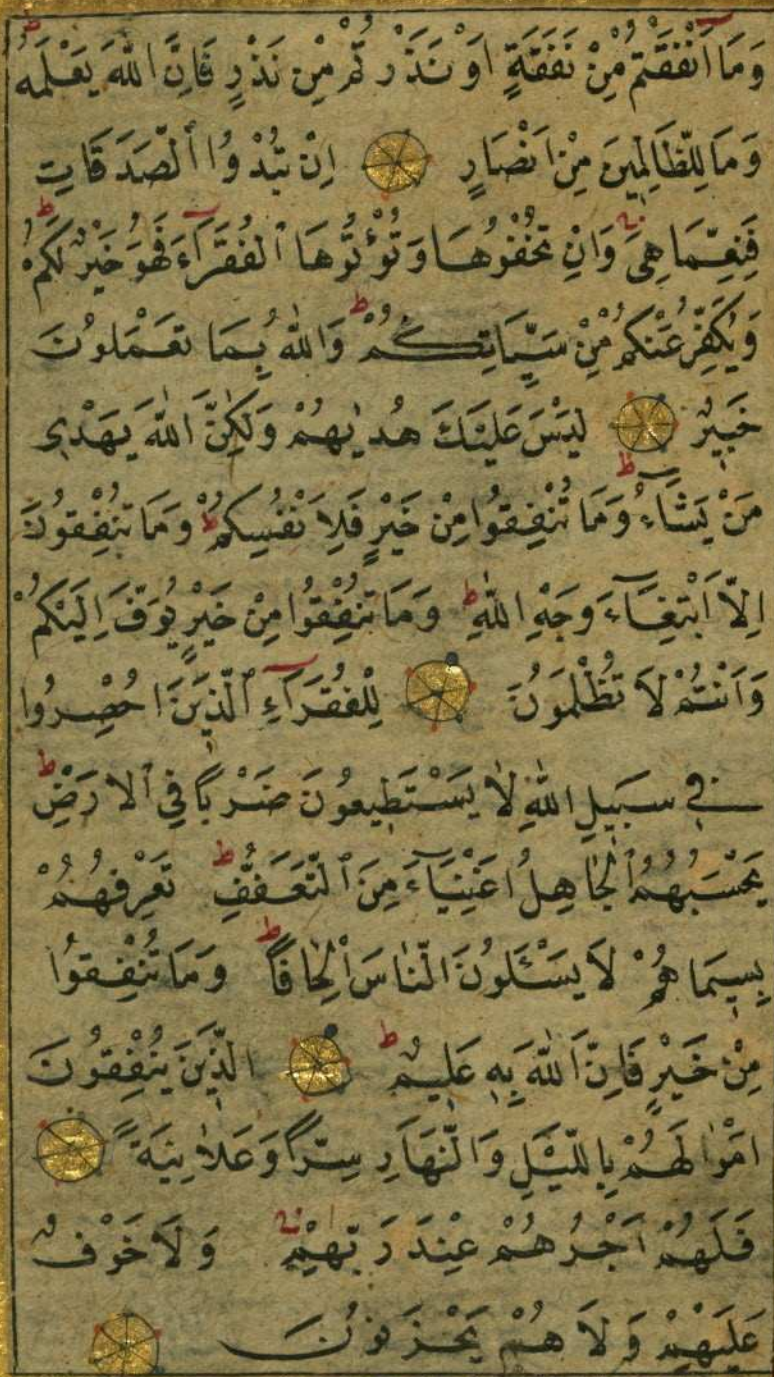 وَمَا أَنْفَقْتُمْ مِنْ نَفَقَةٍ اَوْ نَذَرْتُمْ مِنْ نَذْرٍ فَاِنَّ اللّٰهَ يَعْلَمُهُ ط
وَمَا لِلظَّالِمِينَ مِنْ اَنْصَارٍ اِنْ تُبْدُوا ٱلصَّدَقَاتِ
فَنِعِمَّا هِيَ وَاِنْ تُخْفُوهَا وَتُؤْتُوهَا ٱلْفُقَرَآءَ فَهُوَ خَيْرٌ لَكُمْ ط
وَيُكَفِّرُ عَنْكُمْ مِنْ سَيِّاٰتِكُمْ ط وَاللّٰهُ بِمَا تَعْمَلُونَ
خَبِيرٌ لَيْسَ عَلَيْكَ هُدٰيهُمْ وَلٰكِنَّ اللّٰهَ يَهْدِي
مَنْ يَشَآءُ ط وَمَا تُنْفِقُوا مِنْ خَيْرٍ فَلِاَنْفُسِكُمْ ط وَمَا تُنْفِقُونَ
اِلَّا ابْتِغَآءَ وَجْهِ اللّٰهِ ط وَمَا تُنْفِقُوا مِنْ خَيْرٍ يُوَفَّ اِلَيْكُمْ
وَاَنْتُمْ لَا تُظْلَمُونَ لِلْفُقَرَآءِ ٱلَّذِينَ اُحْصِرُوا
فِي سَبِيلِ اللّٰهِ لَا يَسْتَطِيعُونَ ضَرْبًا فِي ٱلْاَرْضِ ط
يَحْسَبُهُمُ ٱلْجَاهِلُ اَغْنِيَآءَ مِنَ ٱلتَّعَفُّفِ ط تَعْرِفُهُمْ
بِسِيمَاهُمْ لَا يَسْـَٔلُونَ النَّاسَ اِلْحَافًا ط وَمَا تُنْفِقُوا
مِنْ خَيْرٍ فَاِنَّ اللّٰهَ بِهِ عَلِيمٌ ط الَّذِينَ يُنْفِقُونَ
اَمْوَالَهُمْ بِاللَّيْلِ وَالنَّهَارِ سِرًّا وَعَلَانِيَةً
فَلَهُمْ اَجْرُهُمْ عِنْدَ رَبِّهِمْ وَلَا خَوْفٌ
عَلَيْهِمْ وَلَا هُمْ يَحْزَنُونَ